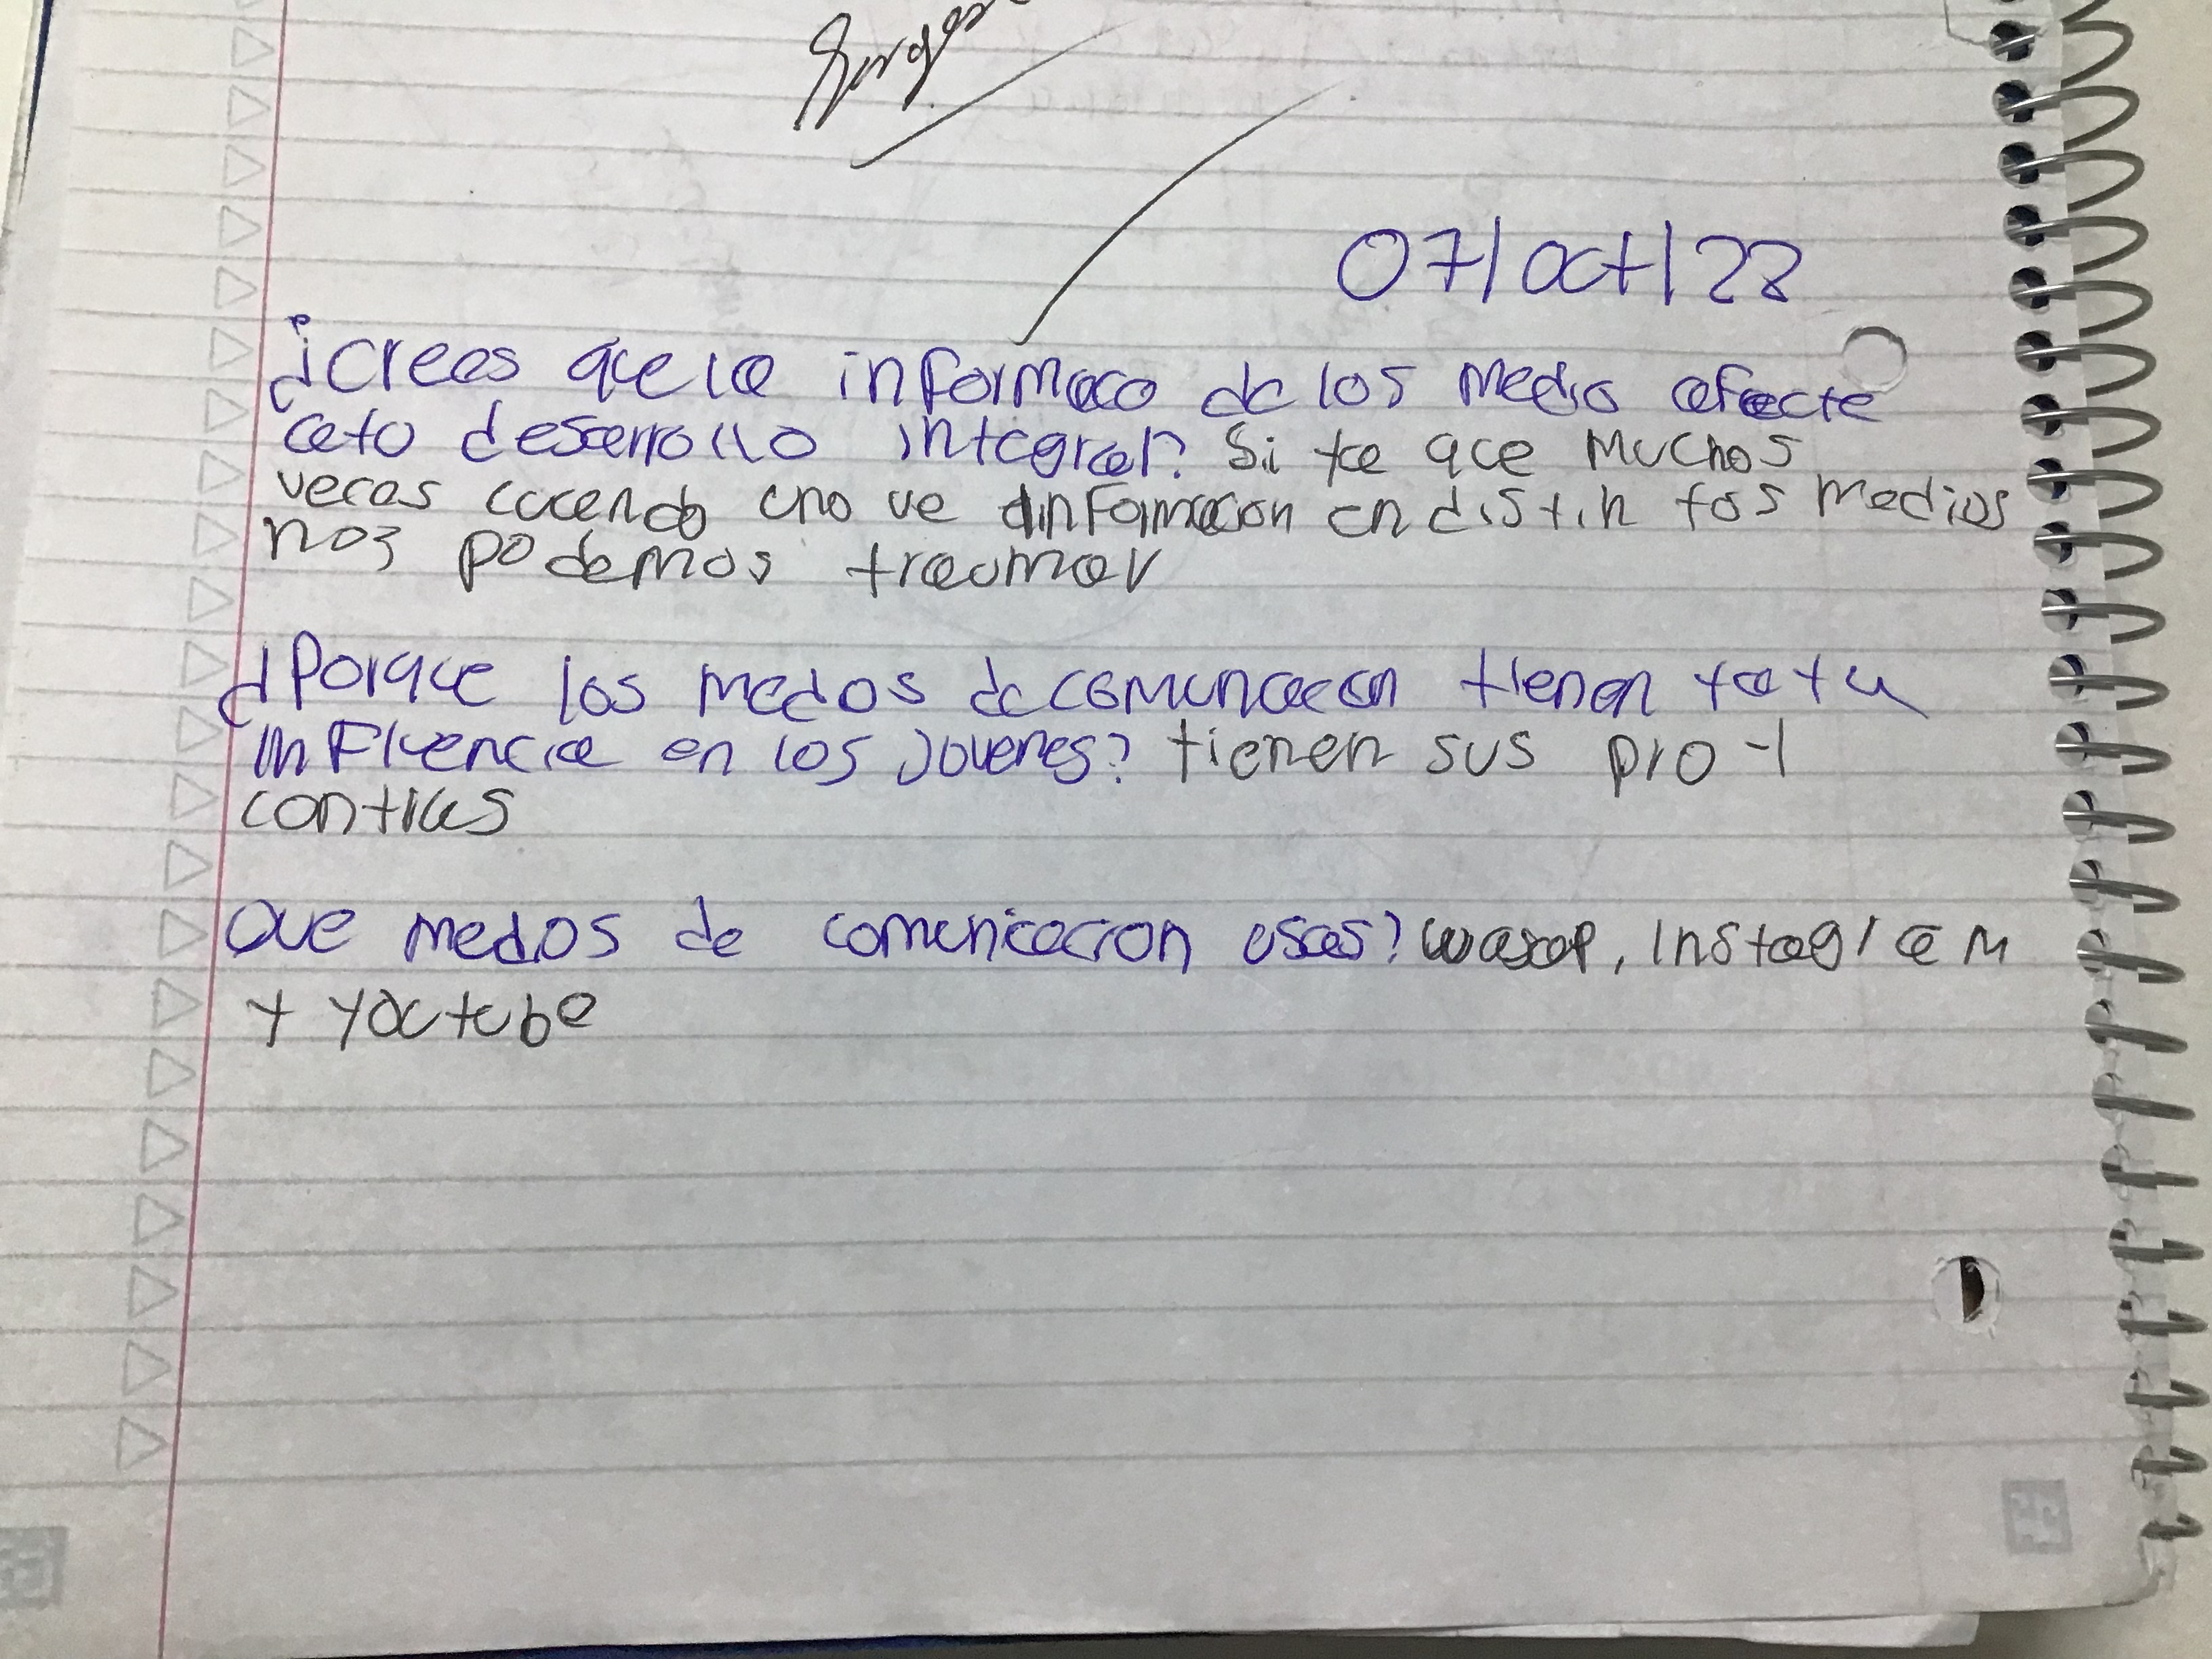 07/oct/22
¿crees que la informaco de los medio afecta
a tu desarrollo integral? Si ya que muchos
veces cuando uno ve informacion en distin tos medios
nos podemos traumar
¿Porque los medos de comuncacon tienen tata
influencia en los jovenes? tienen sus pro y
contras
Que medos de comunicacion usas? wasap, instagram
y youtube